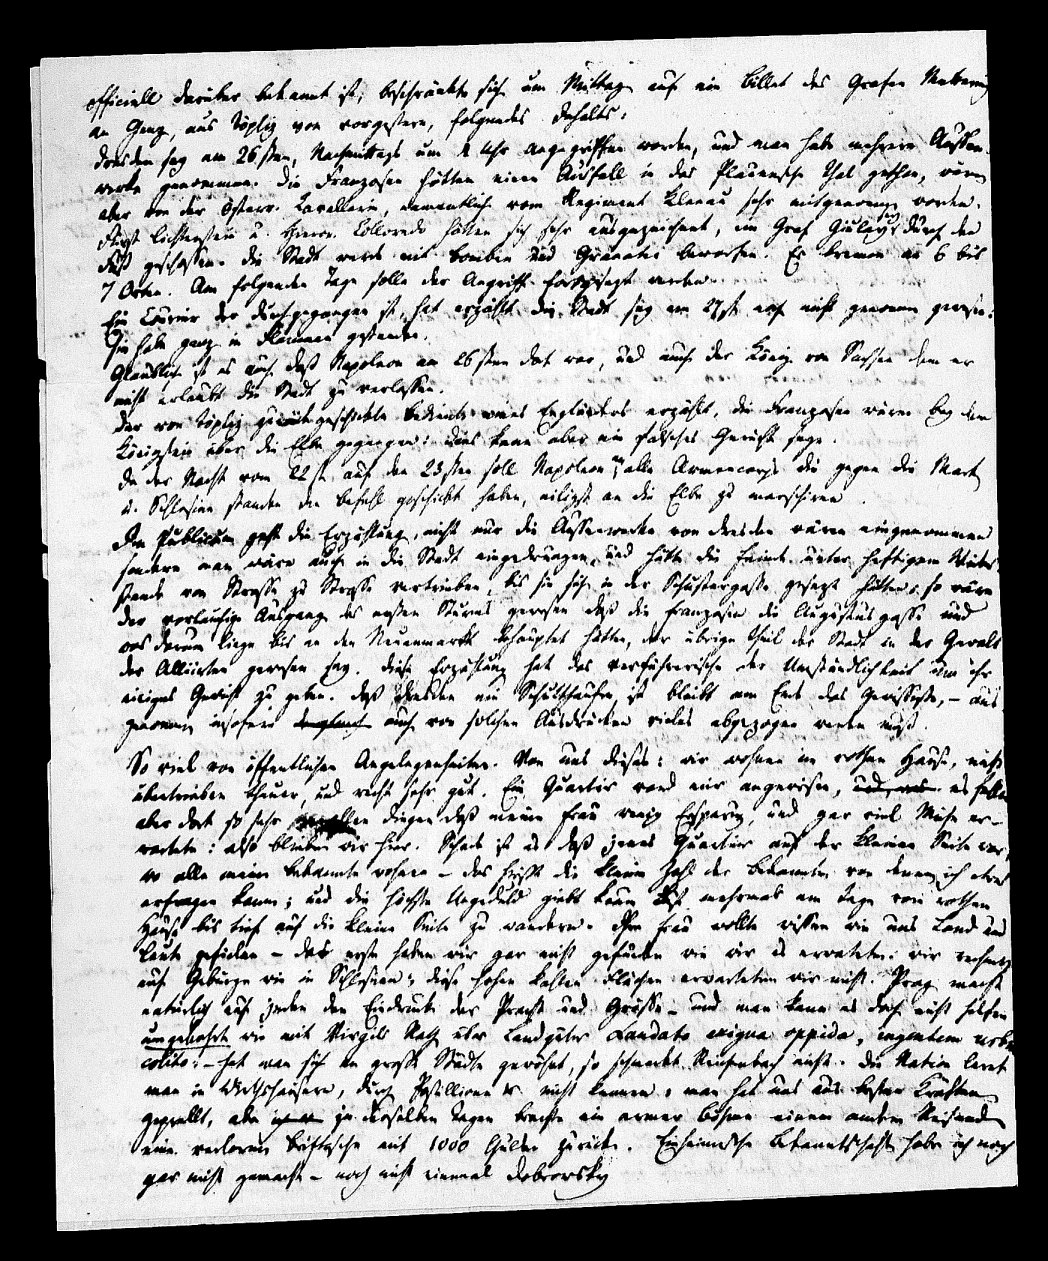 officiell darüber bekannt ist, beschränkte sich um Mittag auf ein Billet des Grafen Metternich
an Genz, aus Töpliz von vorgestern, folgendes Inhalts:
Dresden sey am 26sten, Nachmittags um 4 Uhr angegriffen worden, und man habe mehrere Aussen-
werke genommen. Die Franzosen hätten einen Ausfall in das Plauensche Thal gethan, wären
aber von der Österr. Cavallerie, namentlich vom Regiment Klenau sehr mitgenommen worden.
Fürst Lichtenstein u. Hieron. Colloredo hätten sich sehr ausgezeichnet, ein Graf Giulay sey durch den
Fuß geschossen. Die Stadt werde mit Bomben und Granaten beworfen. Es brenne an 6 bis
7 Orten. Am folgenden Tage solle der Angriff fortgesezt werden.
Ein Courier der durchgegangen ist, hat erzählt die Stadt sey am 27st noch nicht genommen gewesen:
Sie habe ganz in Flammen gestanden.
Glaublich ist es auch daß Napoleon am 26sten dort war, und auch der König von Sachsen dem er
nicht erlaubt die Stadt zu verlassen.
Der von Töpliz zurückgeschickte Bediente eines Engländers erzählt, die Franzosen wären bey dem
Königstein über die Elbe gegangen: dies kann aber ein falsches Gerücht seyn.
In der Nacht vom 22st auf den 23sten soll Napoleon an alle Armeecorps die gegen die Mark
u. Schlesien standen den Befehl geschickt haben, eiligst an die Elbe zu marschiren.
Im Publicum geht die Erzählung, nicht nur die Aussenwerke von Dresden wären eingenommen
sondern man wäre auch in die Stadt eingedrungen, und hätte die Feinde unter heftigem Wider-
stande von Strasse zu Strasse vertrieben, bis sie sich in der Schustergasse gesezt hätten: so wäre
der vorläufige Ausgang des ersten Sturms gewesen daß die Franzosen die Augustusgasse und
was darum liege bis an den Neuenmarkt behauptet hätten, der übrige Theil der Stadt in der Gewalt
der Alliirten gewesen sey. Diese Erzählung hat das verführerische der Umständlichkeit um ihr
einiges Gewicht zu geben. Daß Dresden ein Schutthaufen ist bleibt am Ende das Gewisseste, – aus-
genommen insofern auch von solchen Ausdrücken vieles abgezogen werden muß.
So viel von öffentlichen Angelegenheiten. Von uns dieses: wir wohnen im rothen Hause, nicht
übertrieben theuer, und recht sehr gut. Ein Quartier ward mir angewiesen, es fehlte
aber dort so sehr an allen Dingen daß meine Frau wenig Ersparniß, und gar viel Mühe er-
wartete: also blieben wir hier. Schade ist es daß jenes Quartier auf der kleinen Seite war,
wo alle meine Bekannte wohnen – das heißt die kleine Zahl der Bekannten von denen ich etwas
erfragen kann; und die höchste Ungeduld giebt kaum Lust mehrmals am Tage vom rothen
Hause bis tief auf die kleine Seite zu wandern. Ihre Frau wollte wissen wie uns Land und
Leute gefielen – das erste haben wir gar nicht gefunden wie wir es erwarteten: wir rechneten
auf Gebürge wie in Schlesien: diese hohen kahlen Flächen erwarteten wir nicht. Prag macht
natürlich auf jeden den Eindruck der Pracht und Grösse – und man kann es doch nicht helfen
umgekehrt wie mit Virgils Rath über Landgüter Laudato exigua oppida, ingentem urbem
colito: – hat man sich an große Städte gewöhnt, so schmeckt Reichenbach nicht. Die Nation lernt
man in Wirthshäusern, durch Postillione etc. nicht kennen: man hat uns aus besten Kräften
geprellt, aber in denselben Tagen brachte ein armer Böhme einem andern Reisenden
eine verlorene Brieftasche mit 1000 Gulden zurück. Einheimische Bekanntschaft habe ich noch
gar nicht gemacht – noch nicht einmal Dobrowsky